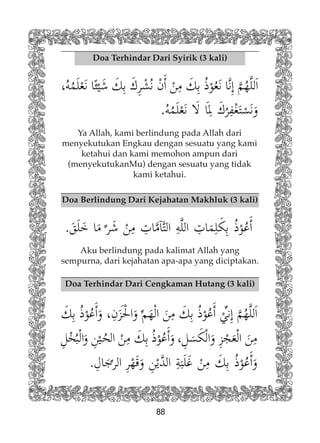 Doa Terhindar Dari Syirik (3 kali)
اَللَّهُمَّ إِنَّا نَعُوْذُ بِكَ مِنْ أَنْ نُشْرِكَ بِكَ شَيْئًا نَعْلَمُهُ،
وَنَسْتَغْفِرُكَ لِمَا لَا نَعْلَمُهُ.
Ya Allah, kami berlindung pada Allah dari
menyekutukan Engkau dengan sesuatu yang kami
ketahui dan kami memohon ampun dari
(menyekutukanMu) dengan sesuatu yang tidak
kami ketahui.
Doa Berlindung Dari Kejahatan Makhluk (3 kali)
أَعُوْذُ بِكَلِمَاتِ اللَّهِ التَّآمَّاتِ مِنْ شَرِّ مَا خَلَقَ.
Aku berlindung pada kalimat Allah yang
sempurna, dari kejahatan apa-apa yang diciptakan.
Doa Terhindar Dari Cengkaman Hutang (3 kali)
اَللَّهُمَّ إِنِّيْ أَعُوْذُ بِكَ مِنَ الْهَمِّ وَالْحَزَنِ، وَأَعُوْذُ بِكَ
مِنَ الْعَجْزِ وَالْكَسَلِ، وَأَعُوْذُ بِكَ مِنْ الْجُبْنِ وَالْبُخْلِ
وَأَعُوْذُ بِكَ مِنْ غَلَبَةِ الدَّيْنِ وَقَهْرِ الرِّجَالِ.
88